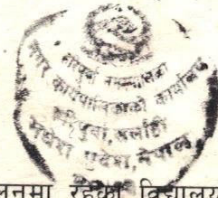 हरिपुर्वा नगरपालिका
नगर कार्यपालिकाको कार्यालय
हरिपुर्वा, सर्लाही
मधेश प्रदेश, नेपाल
लनमा रहेका विद्यालय